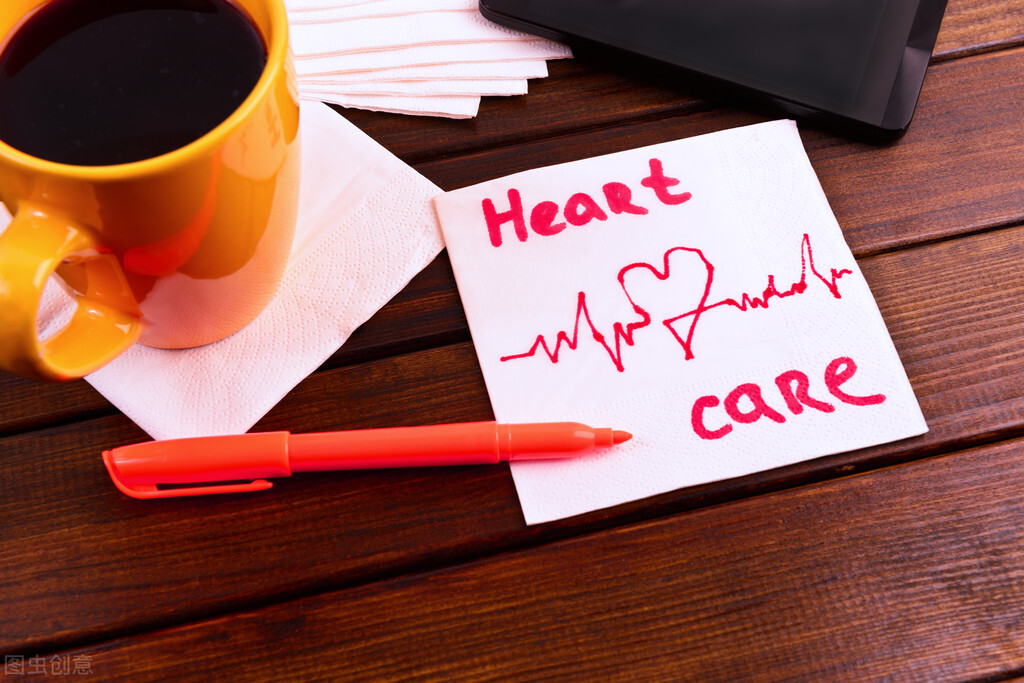 Heart
care
图虫创意